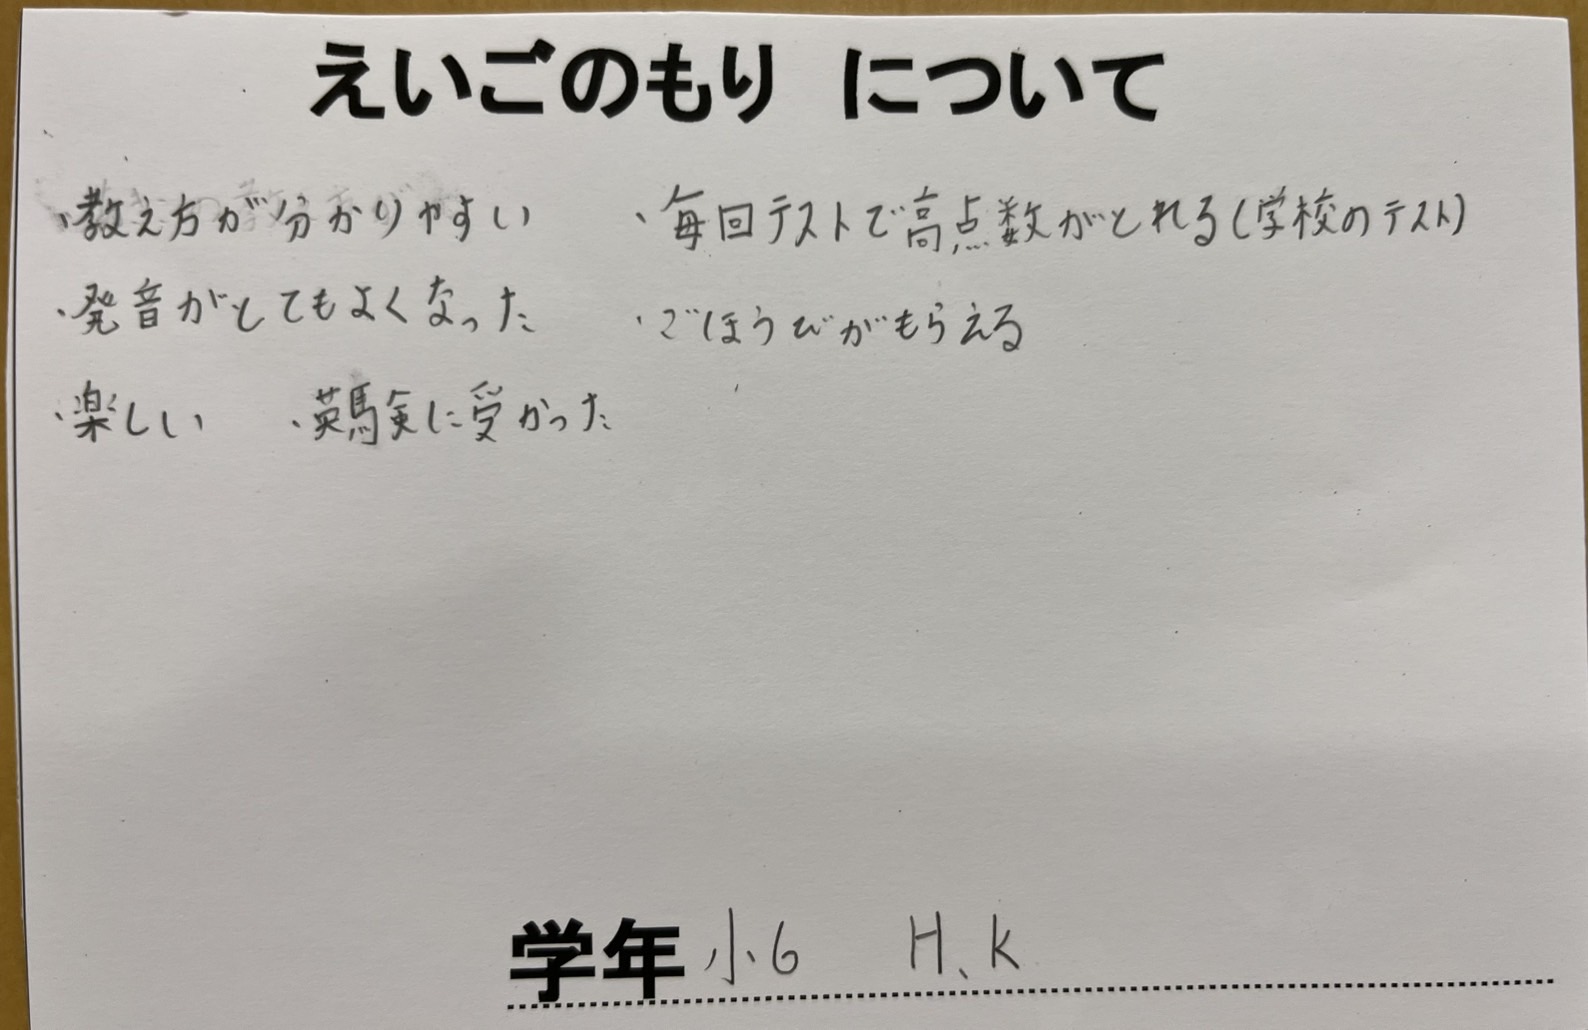 えいごのもり について
・教え方が分かりやすい ・毎回テストで高点数がとれる(学校のテスト)
・発音がとてもよくなった ・ごほうびがもらえる
・楽しい ・英験に受かった
学年 小6 H、K